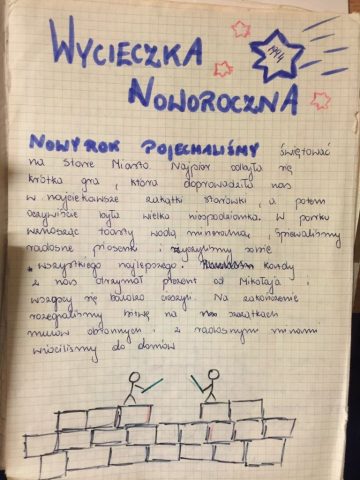 WYCIECZKA
1994
NOWOROCZNA
NOWY ROK POJECHALIŚMY świętować
na Stare Miasto. Najpierw odbyła się
krótka gra, która doprowadziła nas
w najciekawsze zakątki starówki, a potem
oczywiście była wielka niespodzianka. W parku
wznosząc toasty wodą mineralną, śpiewaliśmy
radosne piosenki i życzyliśmy sobie
wszystkiego najlepszego. każdy
z nas otrzymał prezent od Mikołaja i
wszyscy się bardzo cieszyli. Na zakończenie
rozegraliśmy bitwę na resztkach
murów obronnych i z radosnymi minami
wróciliśmy do domów